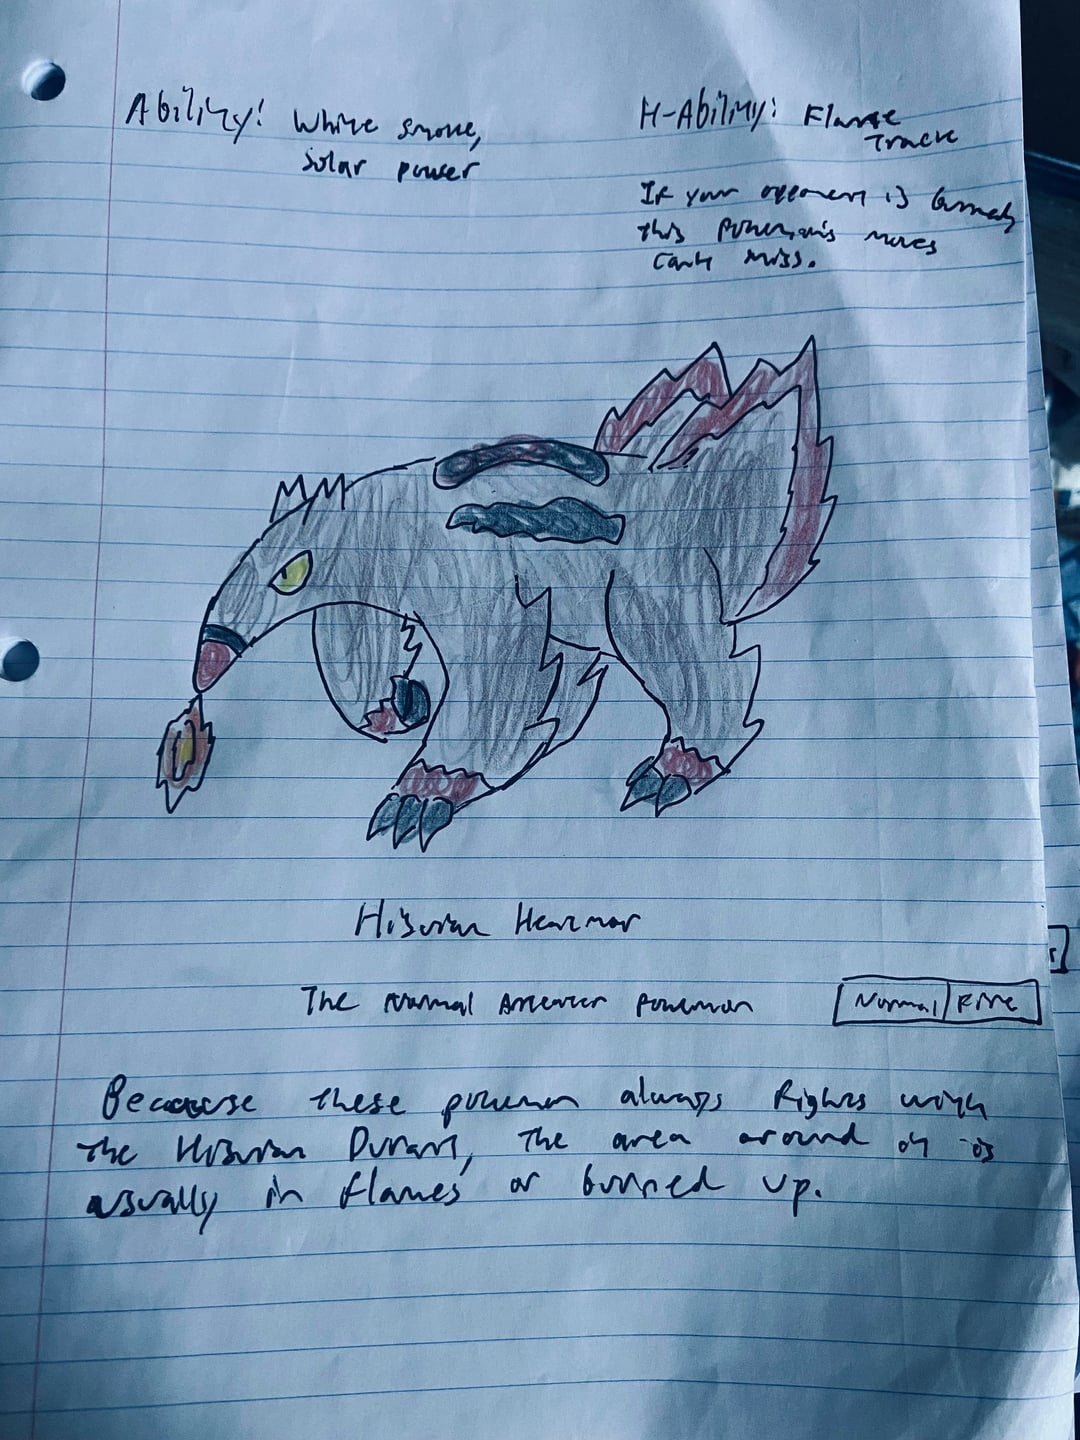 Ability: White smoke,
Solar power
H-Ability: Flame
Track
If your opponent is burned,
this pokemon's moves
can't miss.
Hisuian Heatmor
The Normal Anteater Pokemon
Normal Fire
Because these pokemon always fights with
the Hisuian Durant, the area around is
usually in flames or burned up.